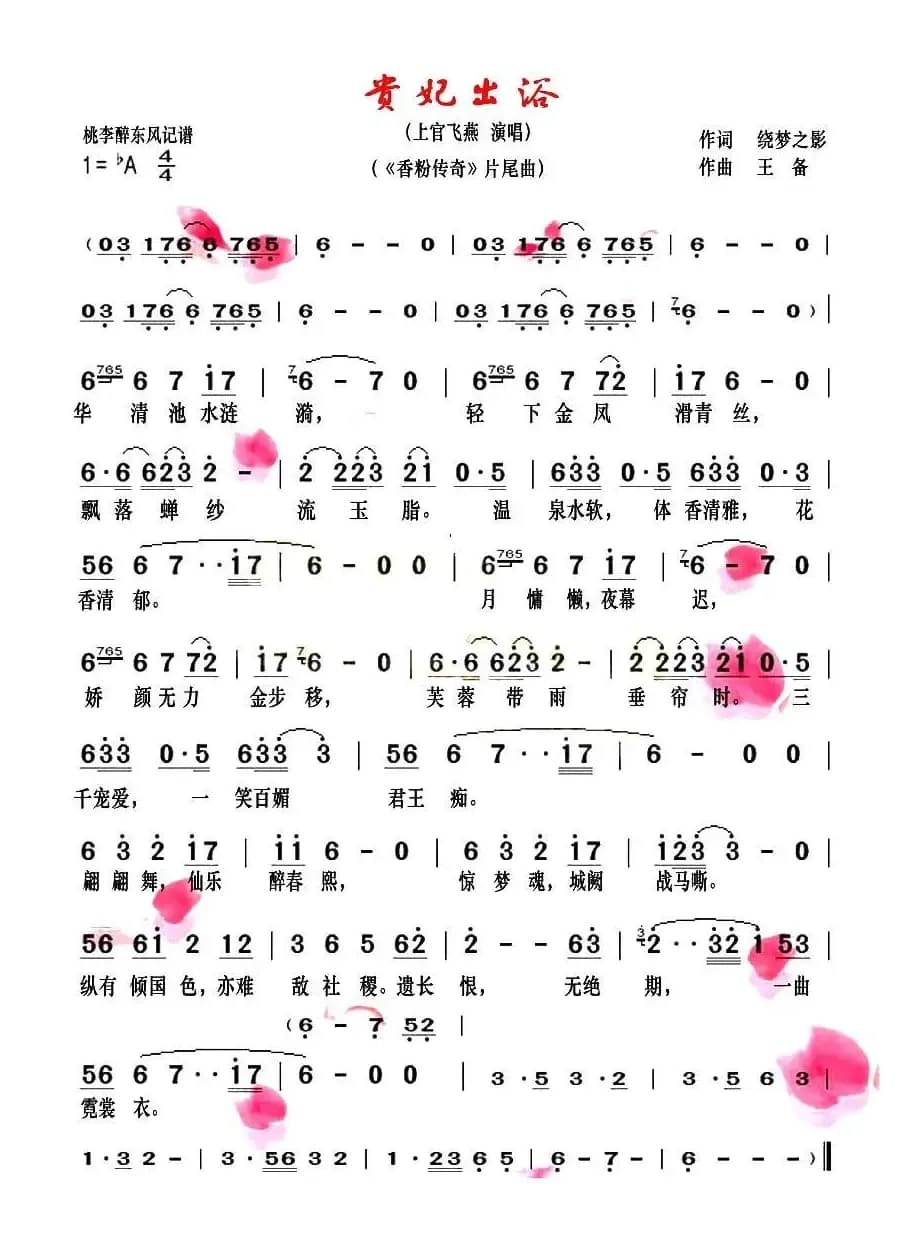 贵妃出浴
桃李醉东风记谱 (上官飞燕 演唱) 作词 绕梦之影
1=♭A 4/4 (《香粉传奇》片尾曲) 作曲 王 备
(03 1766 765 | 6 - - 0 | 03 1766 765 | 6 - - 0 |
03 1766 765 | 6 - - 0 | 03 1766 765 | 7 6 - - 0 ) |
6 765 6 7 17 | 7 6 - 7 0 | 6 765 6 7 72 | 17 6 - 0 |
华 清 池 水涟 漪, 轻 下 金 凤 滑青 丝,
6·6 623 2 - | 2 223 21 0·5 | 633 0·5 633 0·5 |
飘 落 蝉 纱 流 玉 脂。 温 泉水软, 体 香清雅, 花
56 6 7 ··17 | 6 - 0 0 | 6 765 6 7 17 | 7 6 - 7 0 |
香清 郁。 月 慵 懒,夜幕 迟,
6 765 6 7 72 | 17 7 6 - 0 | 6·6 623 2 - | 2 223 21 0·5 |
娇 颜 无 力 金步 移, 芙 蓉 带 雨 垂 帘 时。 三
633 0·5 633 3 | 56 6 7 ··17 | 6 - 0 0 |
千宠爱, 一 笑百媚 君王 痴。
6 3 2 17 | 11 6 - 0 | 6 3 2 17 | 123 3 - 0 |
翩 翩 舞,仙乐 醉春 熙, 惊 梦 魂,城阙 战马嘶。
56 61 2 12 | 3 6 5 62 | 2 - - 63 | 3 2 ··32 1 53 |
纵有 倾国 色,亦难 敌 社 稷。遗长 恨, 无绝 期, 一曲
(6 - 7 52 |
56 6 7 ··17 | 6 - 0 0 | 3 ·5 3 ·2 | 3 ·5 6 3 |
霓裳 衣。
1·3 2 - | 3·56 3 2 | 1·23 6 5 | 6 - 7 - | 6 - - - )‖